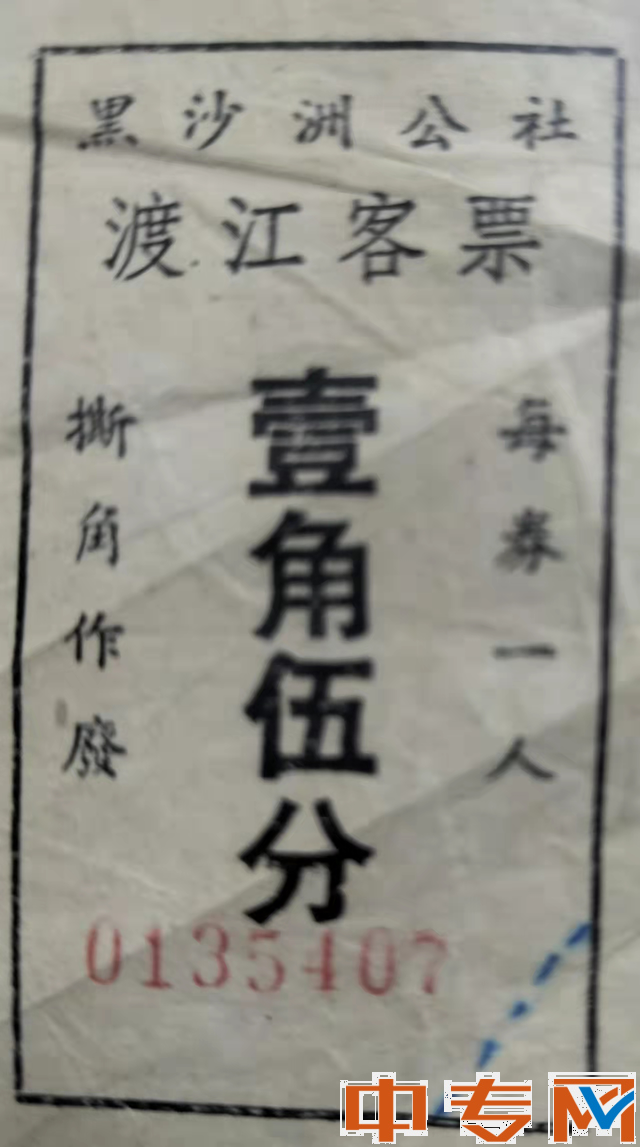 黑沙洲公社
渡江客票
每券一人
壹角伍分
撕角作廢
0135407
中专网